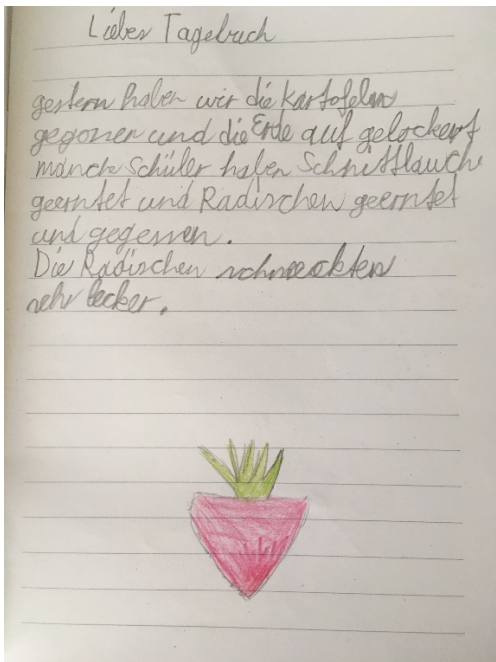 Liebes Tagebuch
gestern haben wir die Kartofeln
gegossen und die Erde auf gelockert
manche Schüler haben Schnittlauche
geerntet und Radischen geerntet
und gegessen.
Die Radischen schmeckten
sehr lecker.